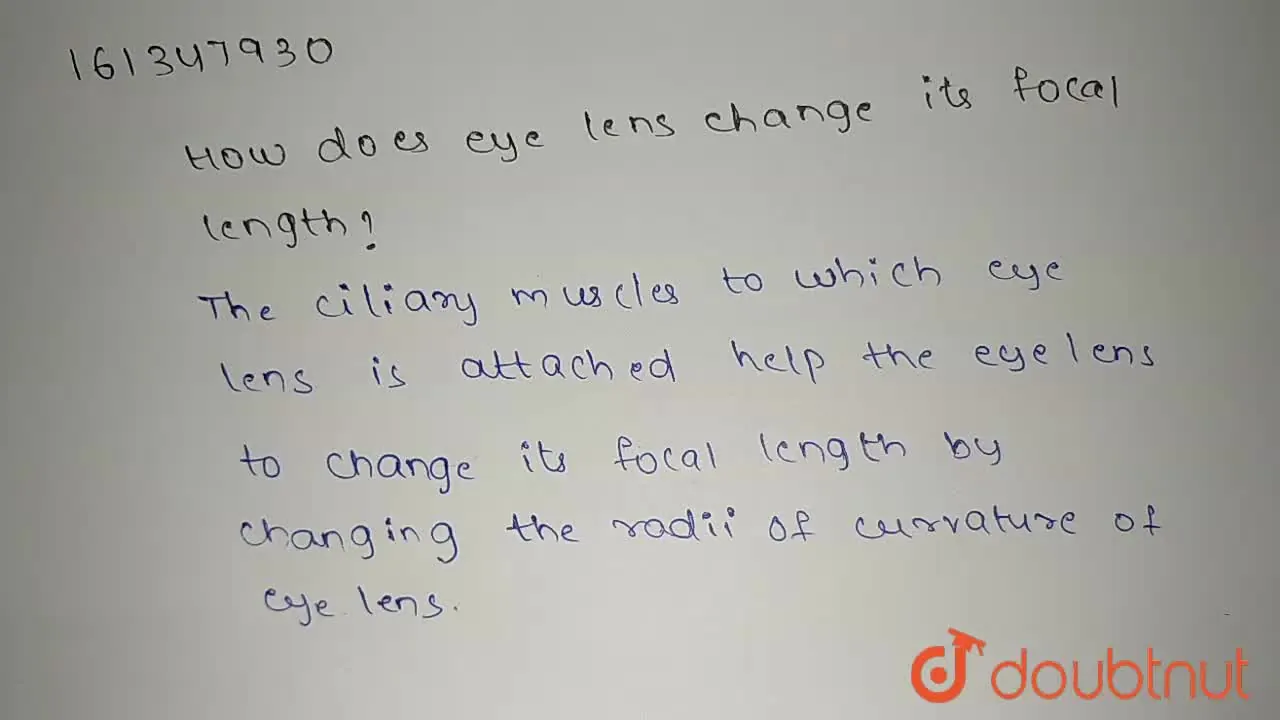 161347930
How does eye lens change its focal
length?
The ciliary muscles to which eye
lens is attached help the eye lens
to change its focal length by
changing the radii of curvature of
eye lens.
doubtnut